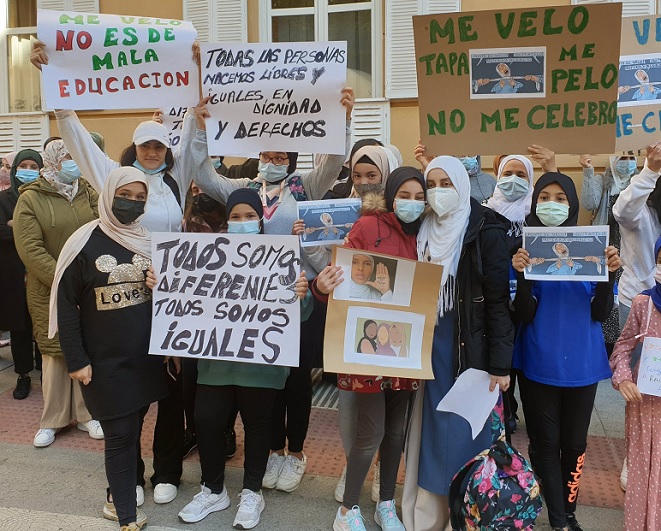 ME VELO
NO ES DE
MALA
EDUCACION
TODAS LAS PERSONAS
NACEMOS LIBRES Y
IGUALES EN
DIGNIDAD
Y DERECHOS
ME VELO
TAPA
ME
PELO
NO ME CELEBRO
TODOS SOMOS
DIFERENTES
TODOS SOMOS
IGUALES
Love
adidas